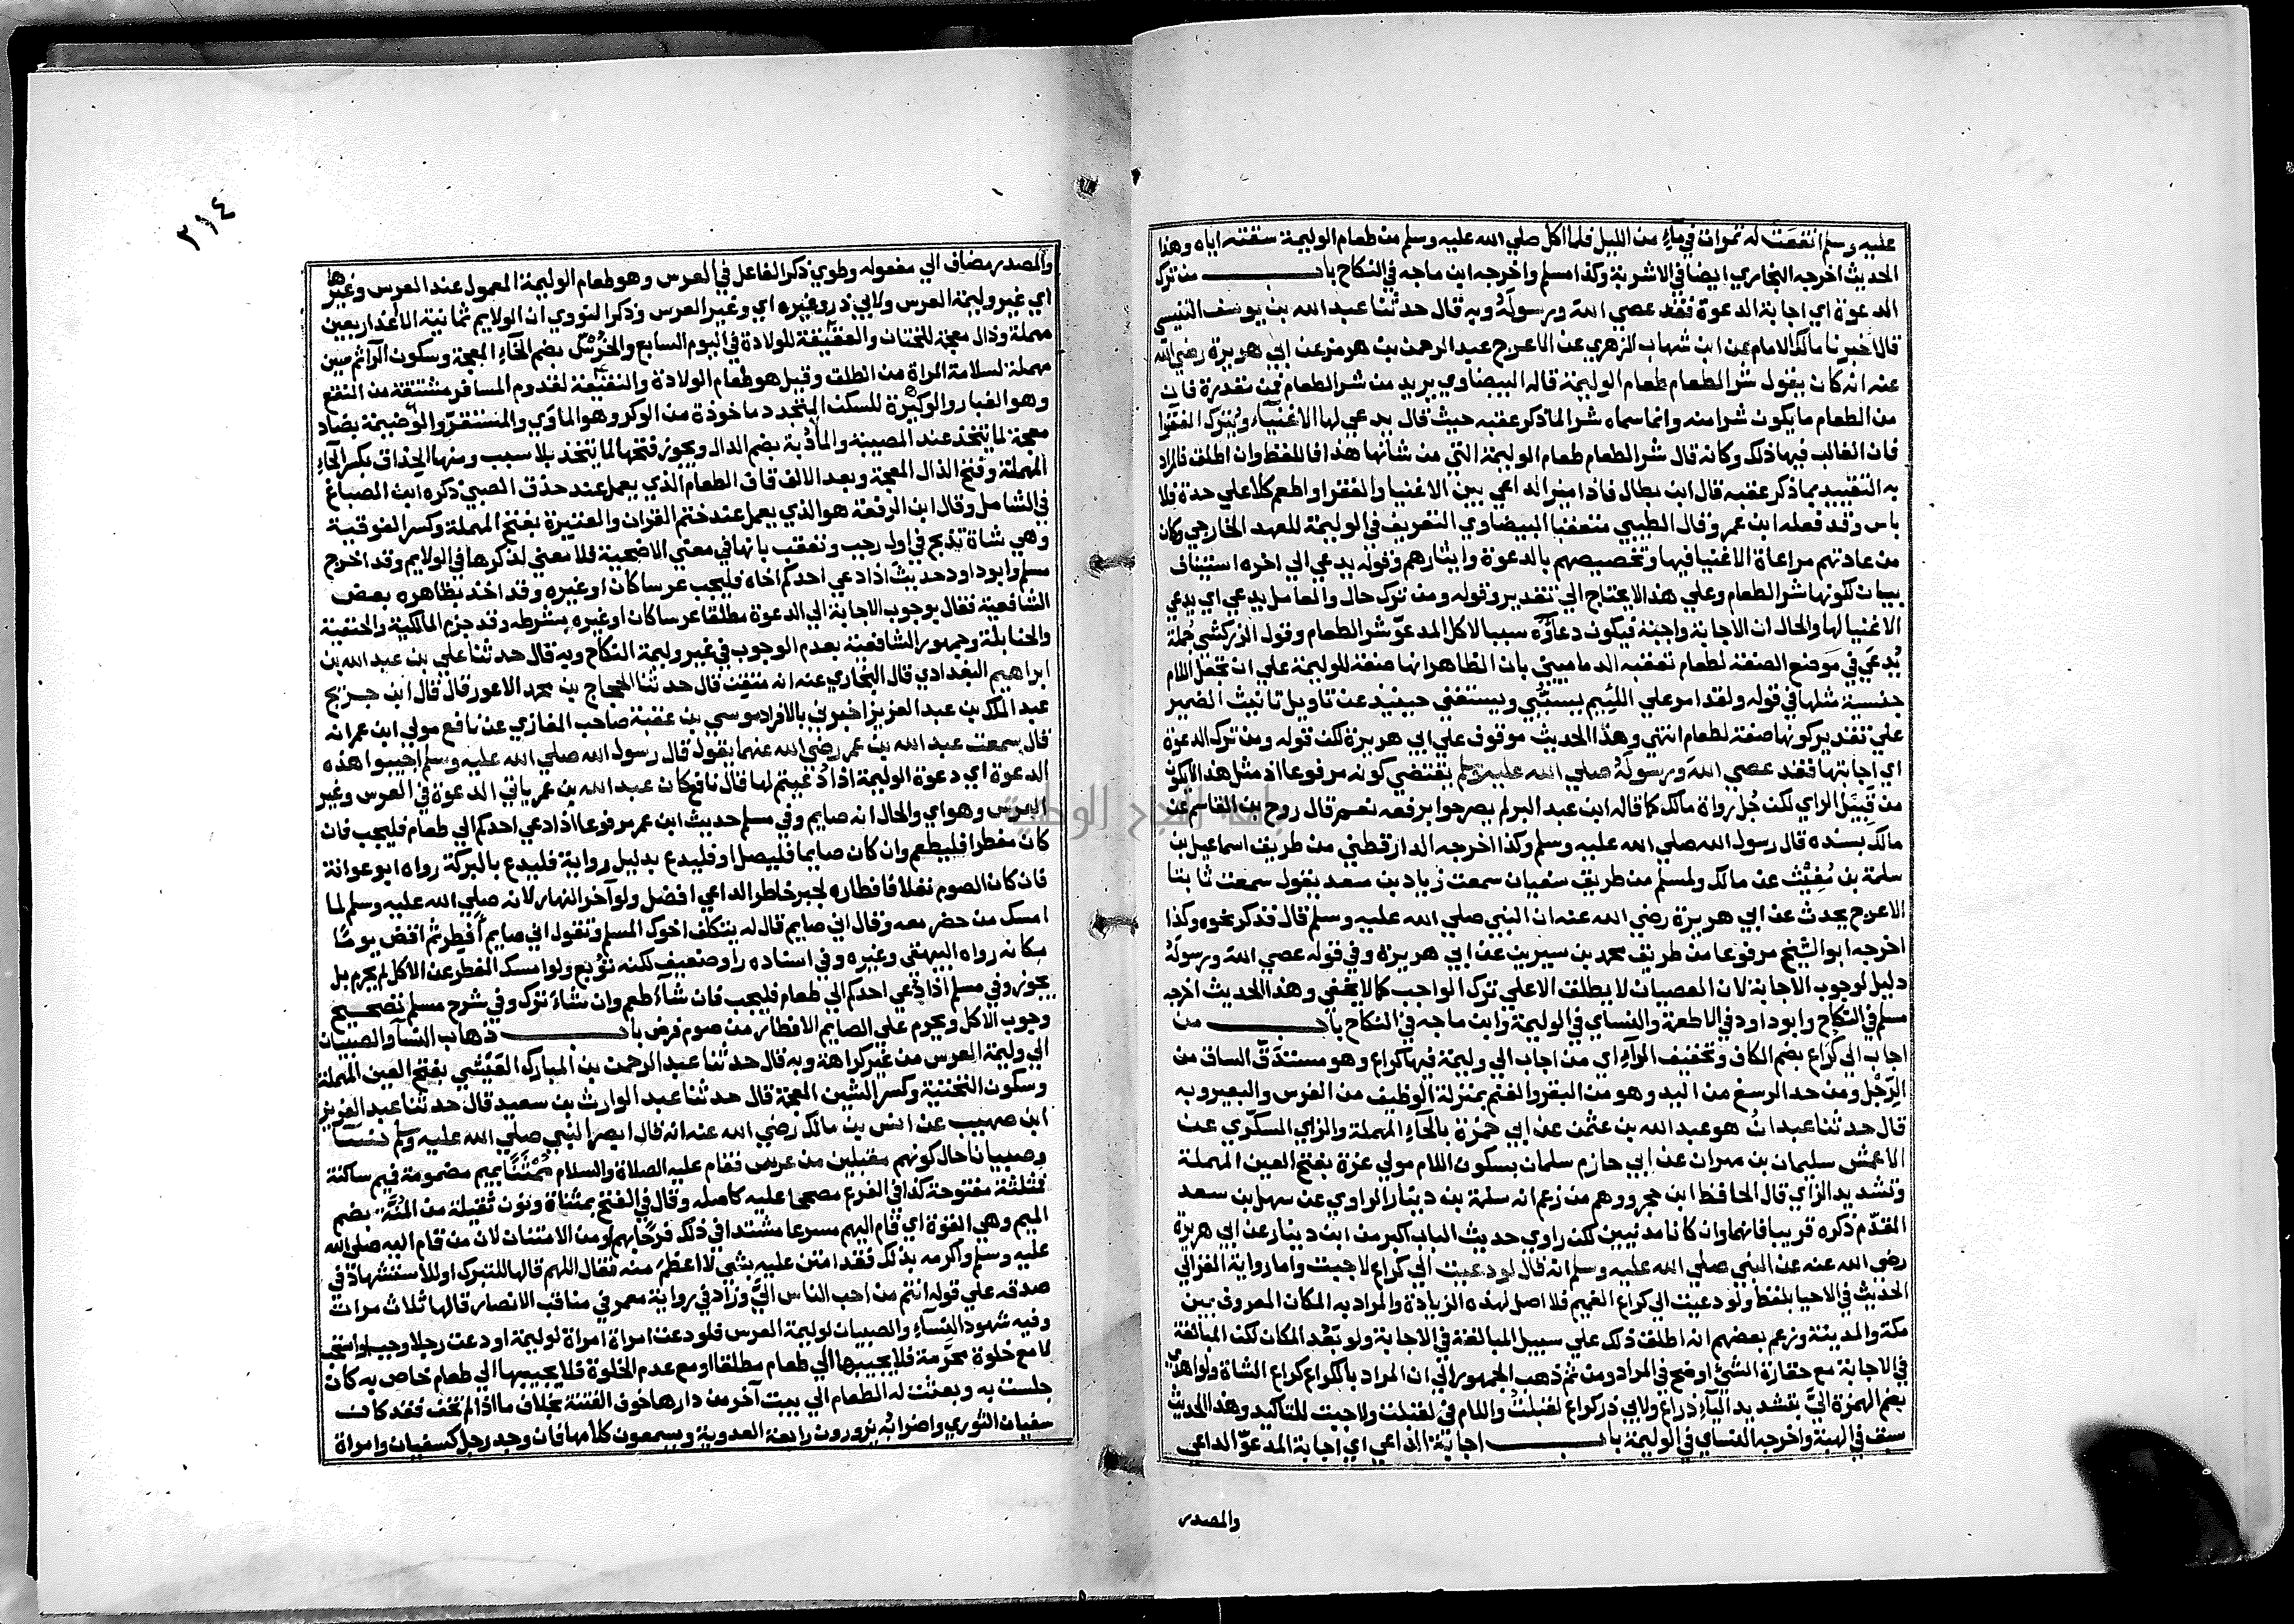 عليه وسلم انقعت له تمرات في ماء من الليل فلما اكل صلي الله عليه وسلم من طعام الوليمة سقته اياه وهذا
الحديث اخرجه البخاري ايضا في الاشربة وكذا مسلم واخرجه ابن ماجه في النكاح باب من ترك
الدعوة اي اجابة الدعوة فقد عصي الله ورسوله وبه قال حدثنا عبد الله بن يوسف التنيسي
قال اخبرنا مالك الامام عن ابن شهاب الزهري عن الاعرج عبد الرحمن بن هرمز عن ابي هريرة رضي الله
عنه انه كان يقول شر الطعام طعام الوليمة قاله البيضاوي يريد من شر الطعام فمن مقدرة فان
من الطعام ما يكون شرا منه وانما سماه شرا لما ذكر عقبه حيث قال يدعي لها الاغنياء ويترك الفقرا
فان الغالب فيها ذلك وكانه قال شر الطعام طعام الوليمة التي من شانها هذا فاللفظ وان اطلق فالمراد
به التقييد بما ذكر عقبه قال ابن بطال فاذا ميز الداعي بين الاغنيا والفقرا واطعم كلا علي حدة فلا
باس وقد فعله ابن عمر وقال الطيبي متعقبا البيضاوي التعريف في الوليمة للعهد الخارجي وكان
من عادتهم مراعاة الاغنيا فيها وتخصيصهم بالدعوة وايثارهم وقوله يدعي الي اخره استيناف
بيان لكونها شر الطعام وعلي هذا لا يحتاج الي تقدير وقوله ومن ترك حال والعامل يدعي اي يدعي
الاغنيا لها والحال ان الاجابة واجبة فيكون دعاؤه سببا لاكل المدعو شر الطعام وقول الزركشي جملة
يدعي في موضع الصفة لطعام تعقبه الدماميني بان الظاهر انها صفة للوليمة علي ان تجعل اللام
جنسية مثلها في قوله ولقد امر علي اللئيم يسبني ويستغني حينئذ عن تاويل تانيث الضمير
علي تقدير كونها صفة لطعام انتهي وهذا الحديث موقوف علي ابي هريرة لكن قوله ومن ترك الدعوة
اي اجابتها فقد عصي الله ورسوله صلي الله عليه وسلم يقتضي كونه مرفوعا اذ مثل هذا لا يكون
من قبيل الراي لكن جل رواة مالك كما قاله ابن عبد البر لم يصرحوا برفعه نعم قال روح بن القاسم عن
مالك بسنده قال رسول الله صلي الله عليه وسلم وكذا اخرجه الدارقطني من طريق اسماعيل بن
سلمة بن قعنب عن مالك ولمسلم من طريق سفيان سمعت زياد بن سعد يقول سمعت ثابتا
الاعرج يحدث عن ابي هريرة رضي الله عنه ان النبي صلي الله عليه وسلم قال فذكر نحوه وكذا
اخرجه ابو الشيخ مرفوعا من طريق محمد بن سيرين عن ابي هريرة وفي قوله عصي الله ورسوله
دليل لوجوب الاجابة لان العصيان لا يطلق الا علي ترك الواجب كما لا يخفي وهذا الحديث اخرجه
مسلم في النكاح وابو داود في الاطعمة والنساي في الوليمة وابن ماجه في النكاح باب من
اجاب الي كراع بضم الكاف وتخفيف الراء اي من اجاب الي وليمة فيها كراع وهو مستدق الساق من
الرجل ومن حد الرسغ من اليد وهو من البقر والغنم بمنزلة الوظيف من الفرس والبعير وبه
قال حدثنا عبدان هو عبد الله بن عثمن عن ابي حمزة بالحاء المهملة والزاي السكري عن
الاعمش سليمان بن مهران عن ابي حازم سلمان بسكون اللام مولي عزة بفتح العين المهملة
وتشديد الزاي قال الحافظ ابن حجر ووهم من زعم انه سلمة بن دينار الراوي عن سهل بن سعد
المقدم ذكره قريبا فانهما وان كانا مدنيين لكن راوي حديث الباب اكبر من ابن دينار عن ابي هريرة
رضي الله عنه عن النبي صلي الله عليه وسلم انه قال لو دعيت الي كراع لاجبت واما رواية الغزالي
الحديث في الاحيا بلفظ ولو دعيت الي كراع الغميم فلا اصل لهذه الزيادة والمراد به المكان المعروف بين
مكة والمدينة وزعم بعضهم انه اطلق ذلك علي سبيل المبالغة في الاجابة ولو بعد المكان لكن المبالغة
في الاجابة مع حقارة الشئ اوضح في المراد ومن ثم ذهب الجمهور الي ان المراد بالكراع كراع الشاة ولو اهدي
بضم الهمزة الي بتشديد الياء ذراع ولابي ذر كراع لقبلت واللام في لقبلت ولاجبت للتاكيد وهذا الحديث
سبق في الهبة واخرجه النساي في الوليمة باب اجابة الداعي اي اجابة المدعو الداعي
والمصدر
٣١٤
والمصدر مضاف الي مفعوله وطوي ذكر الفاعل في العرس وهو طعام الوليمة المعمول عند العرس وغيرها
اي غير وليمة العرس ولابي ذر وغيره اي وغير العرس وذكر النووي ان الولايم ثمانية الاعذار بعين
مهملة وذال معجمة للختان والعقيقة للولادة في اليوم السابع والخرس بضم الخاء المعجمة وسكون الراء ثم سين
مهملة لسلامة المراة من الطلق وقيل هو طعام الولادة والنقيعة لقدوم المسافر مشتقة من النقع
وهو الغبار والوكيرة للسكن المتجدد ماخوذة من الوكر وهو الماوي والمستقر والوضيمة بضاد
معجمة لما يتخذ عند المصيبة والمأدبة بضم الدال ويجوز فتحها لما يتخذ بلا سبب ومنها الحذاق بكسر الحاء
المهملة وفتح الذال المعجمة وبعد الالف قاف الطعام الذي يعمل عند حذق الصبي ذكره ابن الصباغ
في الشامل وقال ابن الرفعة هو الذي يعمل عند ختم القران والعتيرة بفتح المهملة وكسر الفوقية
وهي شاة تذبح في اول رجب وتعقب بانها في معني الاضحية فلا معني لذكرها في الولايم وقد اخرج
مسلم وابو داود حديث اذا دعي احدكم اخاه فليجب عرسا كان او غيره وقد اخذ بظاهره بعض
الشافعية فقال بوجوب الاجابة الي الدعوة مطلقا عرسا كان او غيره بشرطه وقد جزم المالكية والحنفية
والحنابلة وجمهور الشافعية بعدم الوجوب في غير وليمة النكاح وبه قال حدثنا علي بن عبد الله بن
ابراهيم البغدادي قال البخاري عنه انه متقن قال حدثنا الحجاج بن محمد الاعور قال قال ابن جريج
عبد الملك بن عبد العزيز اخبرني بالافراد موسي بن عقبة صاحب المغازي عن نافع مولي ابن عمر انه
قال سمعت عبد الله بن عمر رضي الله عنهما يقول قال رسول الله صلي الله عليه وسلم اجيبوا هذه
الدعوة اي دعوة الوليمة اذا دعيتم لها قال نافع كان عبد الله بن عمر ياتي الدعوة في العرس وغير
العرس وهو اي والحال انه صايم وفي مسلم حديث ابن عمر مرفوعا اذا دعي احدكم الي طعام فليجب فان
كان مفطرا فليطعم وان كان صايما فليصل او فليدع بدليل رواية فليدع بالبركة رواه ابو عوانة
فان كان الصوم نفلا فافطاره لجبر خاطر الداعي افضل ولو آخر النهار لانه صلي الله عليه وسلم لما
امسك من حضر معه وقال اني صايم قال له يتكلف اخوك المسلم وتقول اني صايم أفطر ثم اقض يوما
مكانه رواه البيهقي وغيره وفي اسناده راو ضعيف لكنه توبع ولو امسك المفطر عن الاكل لم يحرم بل
يجوز وفي مسلم اذا دعي احدكم الي طعام فليجب فان شاء طعم وان شاء ترك وفي شرح مسلم تصحيح
وجوب الاكل ويحرم علي الصايم الافطار من صوم فرض باب ذهاب النساء والصبيان
الي وليمة العرس من غير كراهة وبه قال حدثنا عبد الرحمن بن المبارك العيشي بفتح العين المهملة
وسكون التحتية وكسر الشين المعجمة قال حدثنا عبد الوارث بن سعيد قال حدثنا عبد العزيز
ابن صهيب عن انس بن مالك رضي الله عنه انه قال ابصر النبي صلي الله عليه وسلم نساء
وصبيانا حال كونهم مقبلين من عرس فقام عليه الصلاة والسلام ممثنا بميم مضمومة فميم ساكنة
فمثلثة مفتوحة كذا في الفرع مصححا عليه كاصله وقال في الفتح بمثناة ونون ثقيلة من المنة بضم
الميم وهي القوة اي قام اليهم مسرعا مشتدا في ذلك فرحا بهم ومن الامتنان لان من قام اليه صلي الله
عليه وسلم واكرمه بذلك فقد امتن عليه بشي لا اعظم منه فقال اللهم قالها للتبرك او للاستشهاد في
صدقه علي قوله انتم من احب الناس الي وزاد في رواية معمر في مناقب الانصار قالها ثلاث مرات
وفيه شهود النساء والصبيان لوليمة العرس فلو دعت امراة امراة لوليمة او دعت رجلا وجب او استحب
لا مع خلوة محرمة فلا يجيبها الي طعام مطلقا او مع عدم الخلوة فلا يجيبها الي طعام خاص به كان
جلست به وبعثت له الطعام الي بيت آخر من دارها خوف الفتنة بخلاف ما اذا لم تخف فقد كان
سفيان الثوري واضرابه يزورون رابعة العدوية ويسمعون كلامها فان وجد رجل كسفيان وامراة